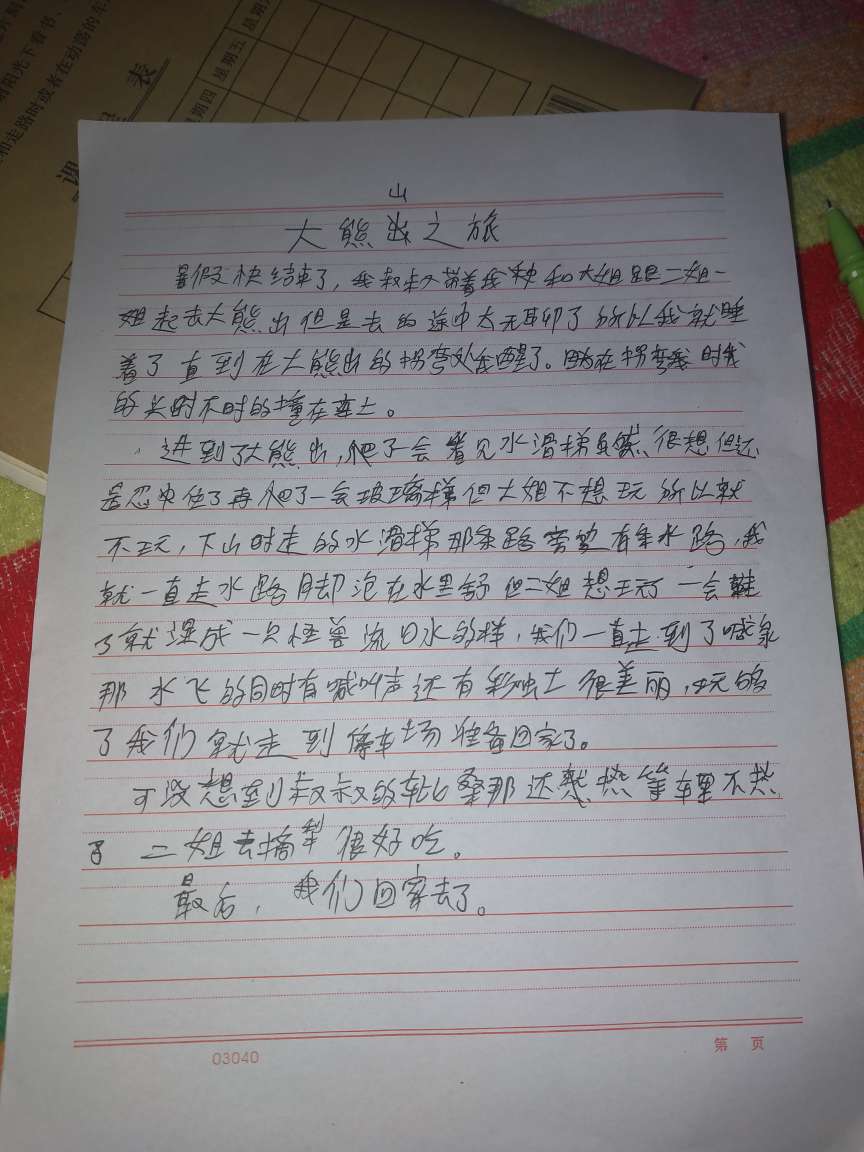 阳光下看书、
和走路时或者在动荡的车
课程表
星期四 星期五 星期六
山
大熊出之旅
暑假快结束了，我叔叔带着我和大姐跟二姐一
起去大熊出但是去的途中太无聊了所以我就睡
着了直到在大熊出的拐弯处我醒了。因为在拐弯时我
的头时不时的撞在车上。
进到了大熊出，爬了一会看见水滑梯虽然很想但还
是忍住了再爬了一会玻璃梯但大姐不想玩所以就
不玩，下山时走的水滑梯那条路旁边有条水路，我
就一直走水路脚泡在水里舒但二姐想玩一会鞋
了就湿成一只怪兽流口水的样，我们一直走到了喊泉
那水飞的同时有喊叫声还有彩虹很美丽，玩够
了我们就走到停车场准备回家了。
可没想到叔叔的车比桑那还热等车里不热
了二姐去摘梨很好吃。
最后，我们回家去了。
03040
第 页